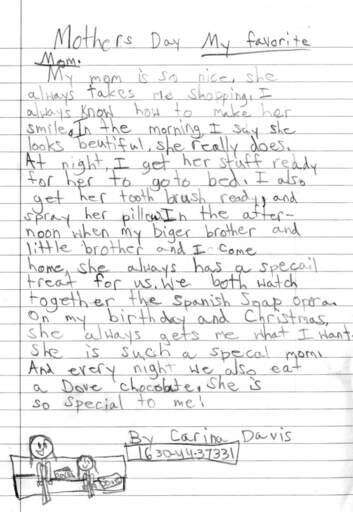 Mothers Day My favorite
Mom.
My mom is so nice, she
always takes me shopping. I
always know how to make her
smile. In the morning I say she
looks beutiful, she really does.
At night, I get her stuff ready
for her to go to bed. I also
get her tooth brush ready, and
spray her pillow. In the after-
noon when my biger brother and
little brother and I come
home, she always has a specail
treat for us. We both watch
together the Spanish Soap opera.
On my birthday and Christmas,
she always gets me what I want.
She is such a specal mom.
And every night we also eat
a Dove chocolate. She is
so special to me!
By Carina Davis
1630-44-37331